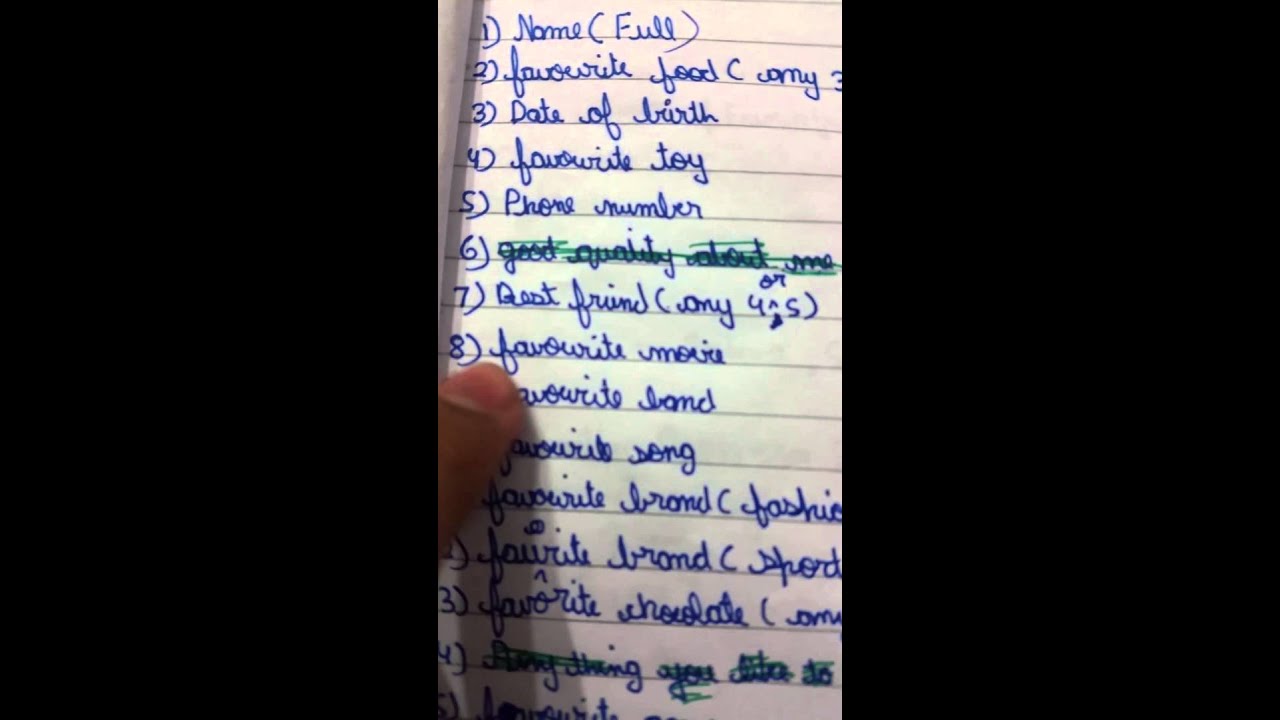 1) Name (Full)
2) favourite food ( any 3
3) Date of birth
4) favourite toy
5) Phone number
6) good quality about me
7) Best friend ( any 4 or 5)
8) favourite movie
avourite band
favourite song
favourite brand ( fashio
) favurite brand ( sport
3) favorite chocolate ( any
4) Any thing you like to
5) favourite